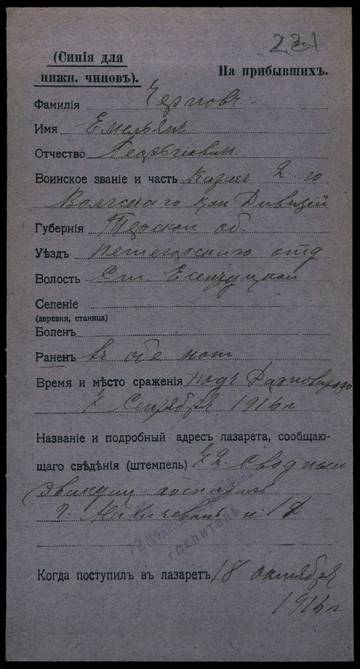 231
(Синія для
нижн. чиновъ).
На прибывшихъ.
Фамилія Черновъ
Имя Емельян
Отчество Георгіевич
Воинское званіе и часть Казак 2го
Волгскаго Каз Дивизій
Губернія Терской об.
Уѣздъ Петегорскаго отд
Волость Ст. Есентуцкой
Селеніе
(деревня, станица)
Боленъ
Раненъ въ обе ноги
Время и мѣсто сраженія подъ
7 Сентября 1916 г
Названіе и подробный адресъ лазарета, сообщаю-
щаго свѣдѣнія (штемпель) 72 Сводный
Эвакуац госпиталь
г. №
ГОСПИТАЛЬ
Когда поступилъ въ лазаретъ 18 октября
1916 г